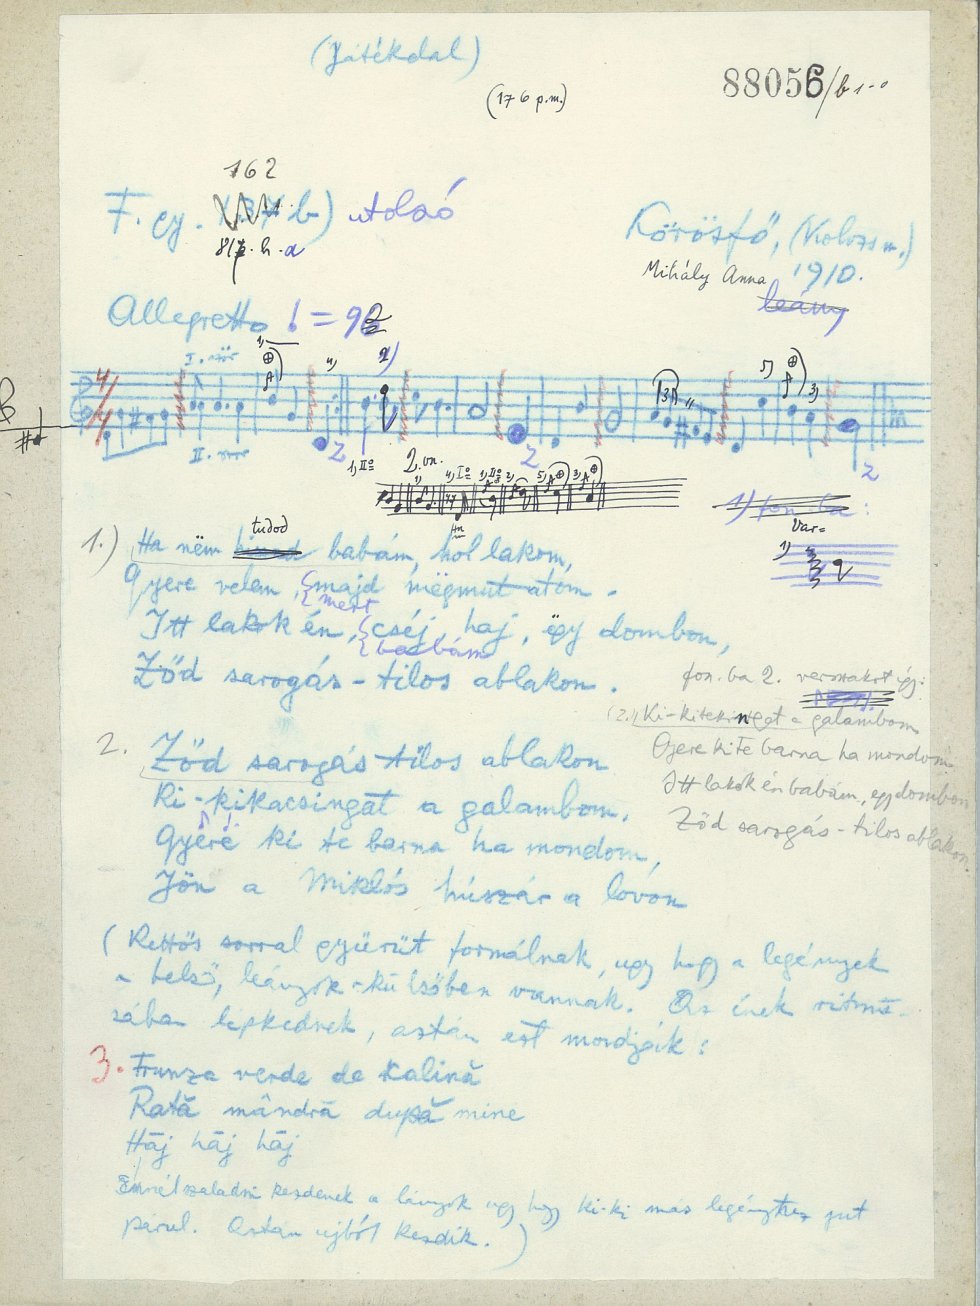 (Játékdal)
88056/b
(176 p.m.)
162
F. gy. b) utolsó
Körösfő, (Kolozs m.)
Mihály Anna 1910.
leány
Allegretto ! = 96
I. ször
II. szor
2. vn.
1.) Ha nëm tudod babám, hol lakom,
Gyere velem, majd mëgmutatom.
mert
Itt lakok én, cséj, haj, ëgy dombon,
babám
Ződ sarogás-tilos ablakon.
var=
fon. ba 2. versszakot így:
(2.) Ki-kitekinget a galambom
Gyere ki te barna ha mondom
Itt lakok én babám, egy dombon
Ződ sarogás-tilos ablakon
2. Ződ sarogás-tilos ablakon
Ki-kikacsingat a galambom.
Gyere ki te barna ha mondom,
Jön a Miklós húszár a lovon
(Kettős sorral gyürüt formálnak, ugy hogy a legények
a belső, leányok-külsőben vannak. Az ének ritmu-
sába lépkednek, aztán ezt mondják:
3. Frunza verde de kalină
Rată mândră după mine
Hāj hāj hāj
Ennél szaladni kezdenek a lányok ugy hogy ki-ki más legényhez jut
párul. Aztán ujból kezdik.)